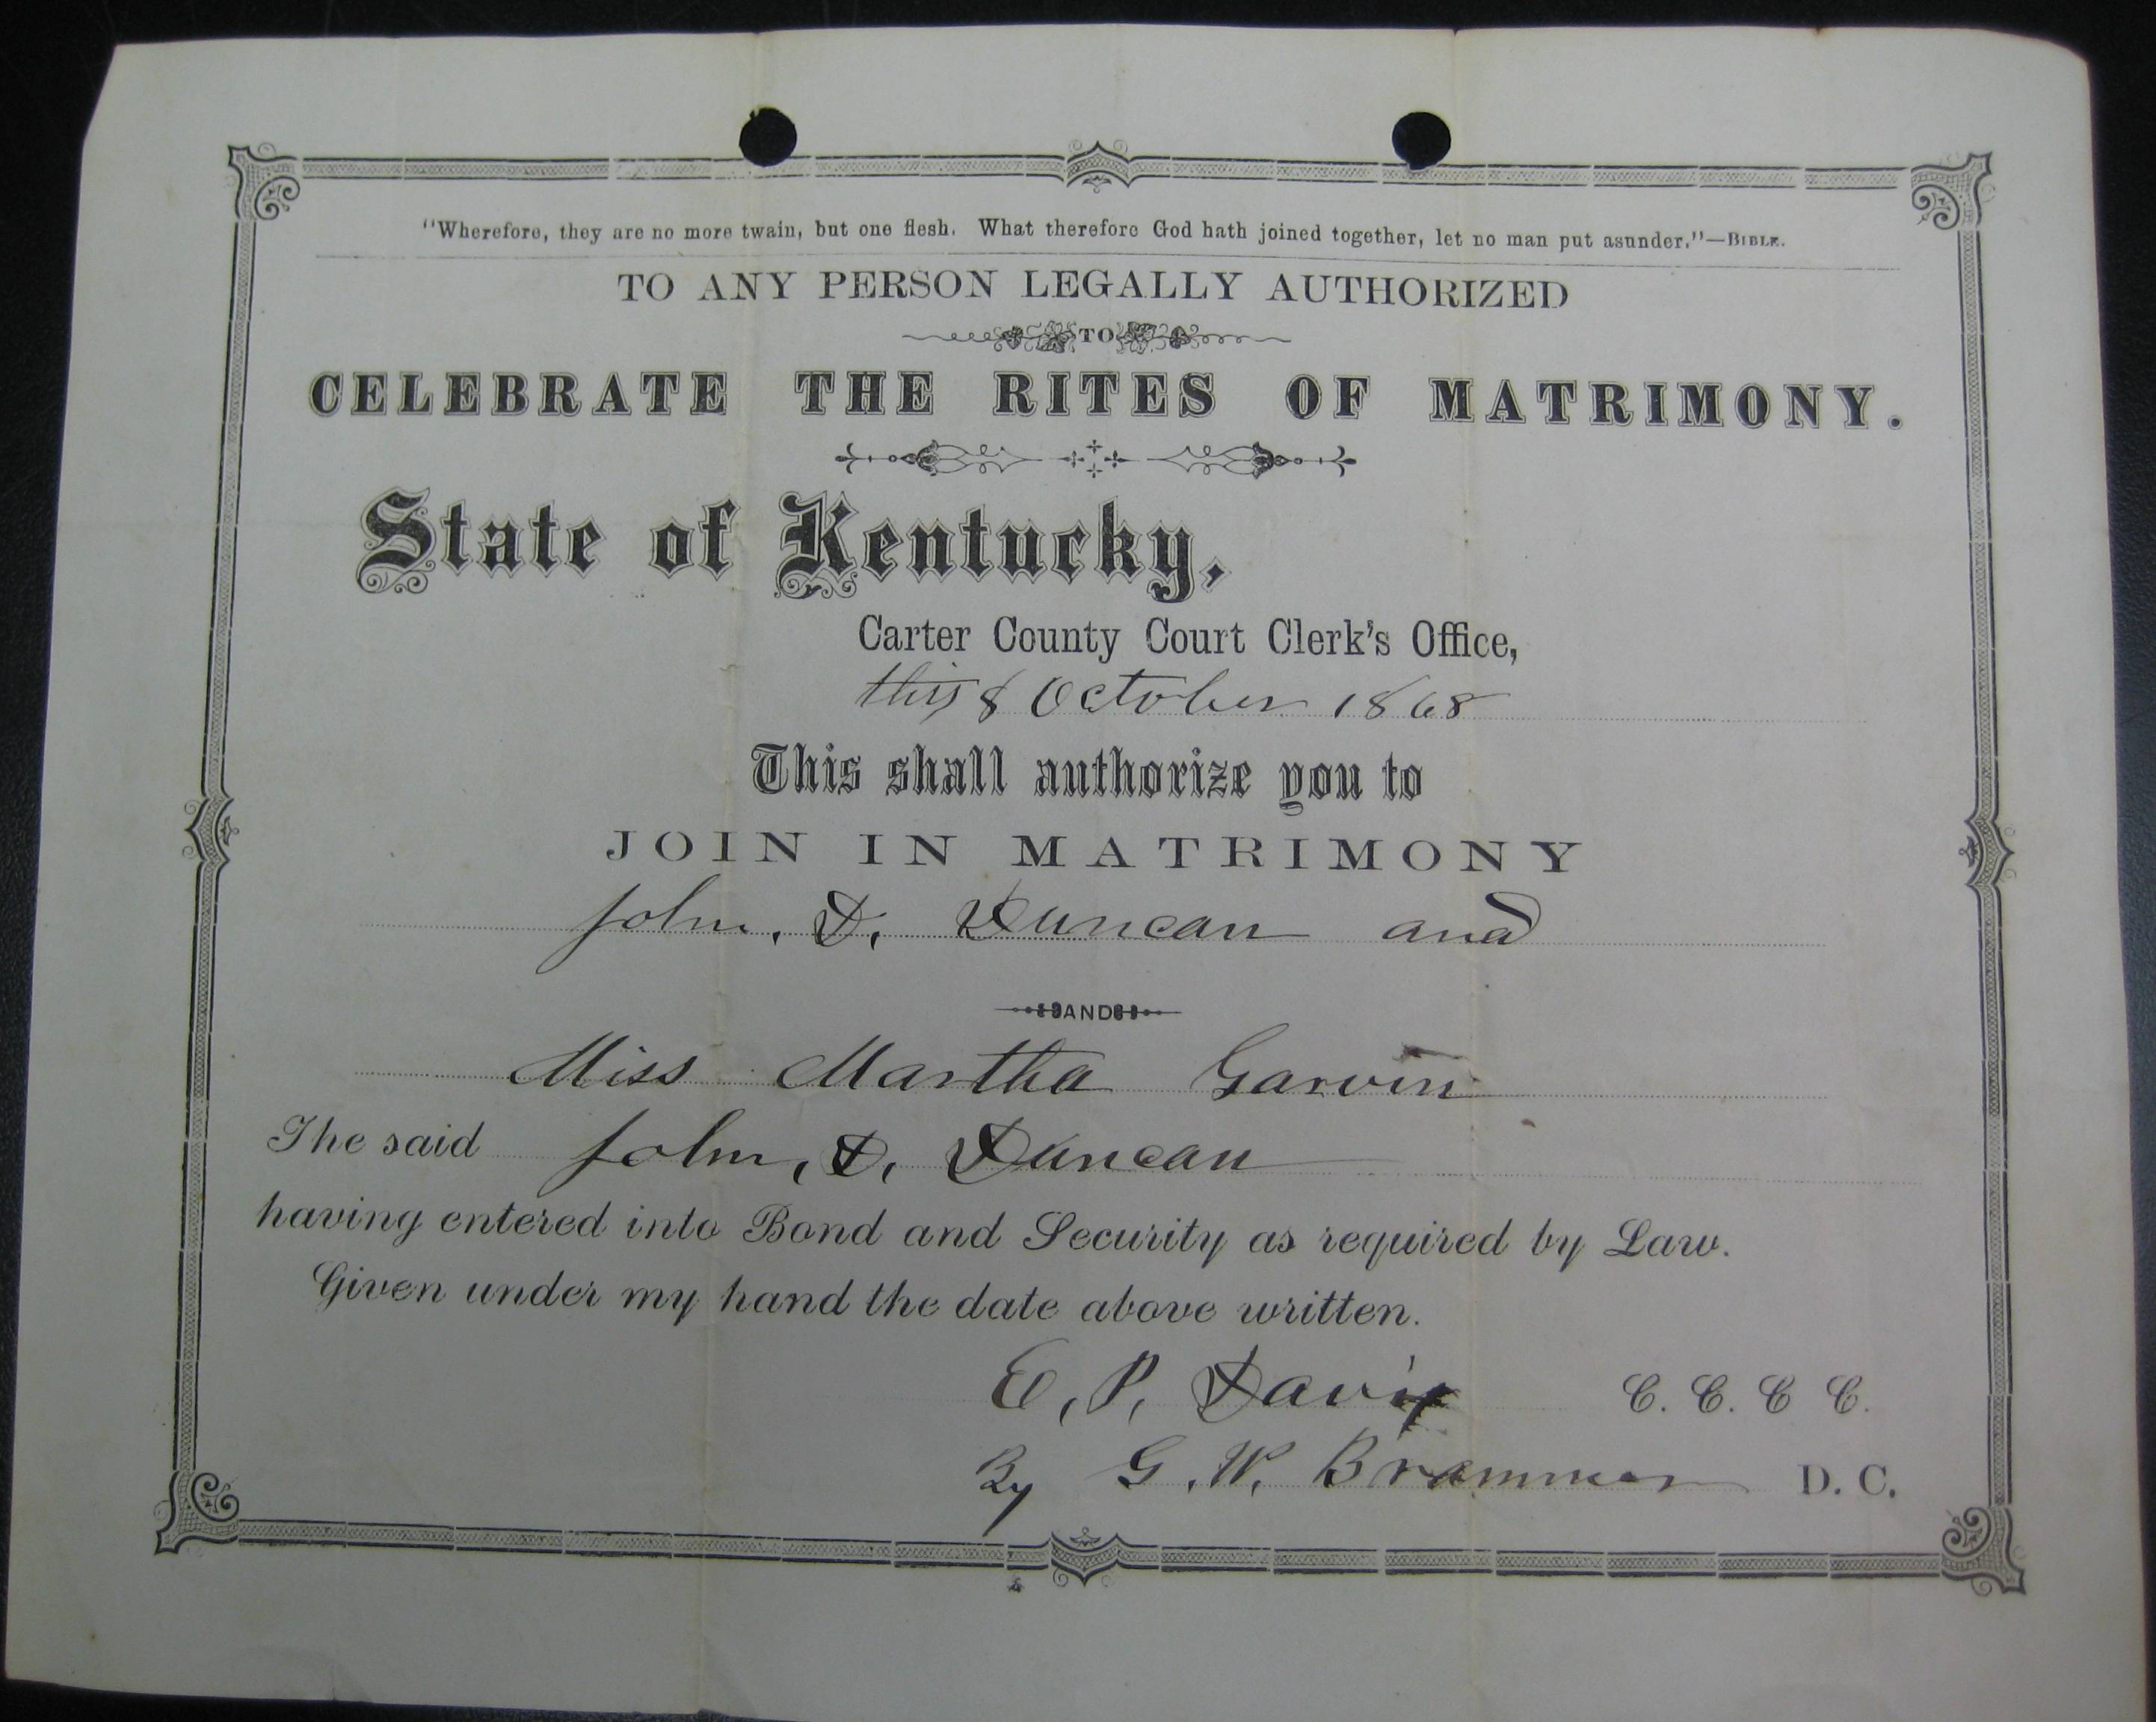 "Wherefore, they are no more twain, but one flesh. What therefore God hath joined together, let no man put asunder."—BIBLE.
TO ANY PERSON LEGALLY AUTHORIZED
TO
CELEBRATE THE RITES OF MATRIMONY.
State of Kentucky,
Carter County Court Clerk's Office,
this 8 October 1868
This shall authorize you to
JOIN IN MATRIMONY
John, D, Duncan and
AND
Miss Martha Garvin
The said John, D, Duncan
having entered into Bond and Security as required by Law.
Given under my hand the date above written.
E, P, Davis C. C. C C.
By G. W. Brammer D. C.